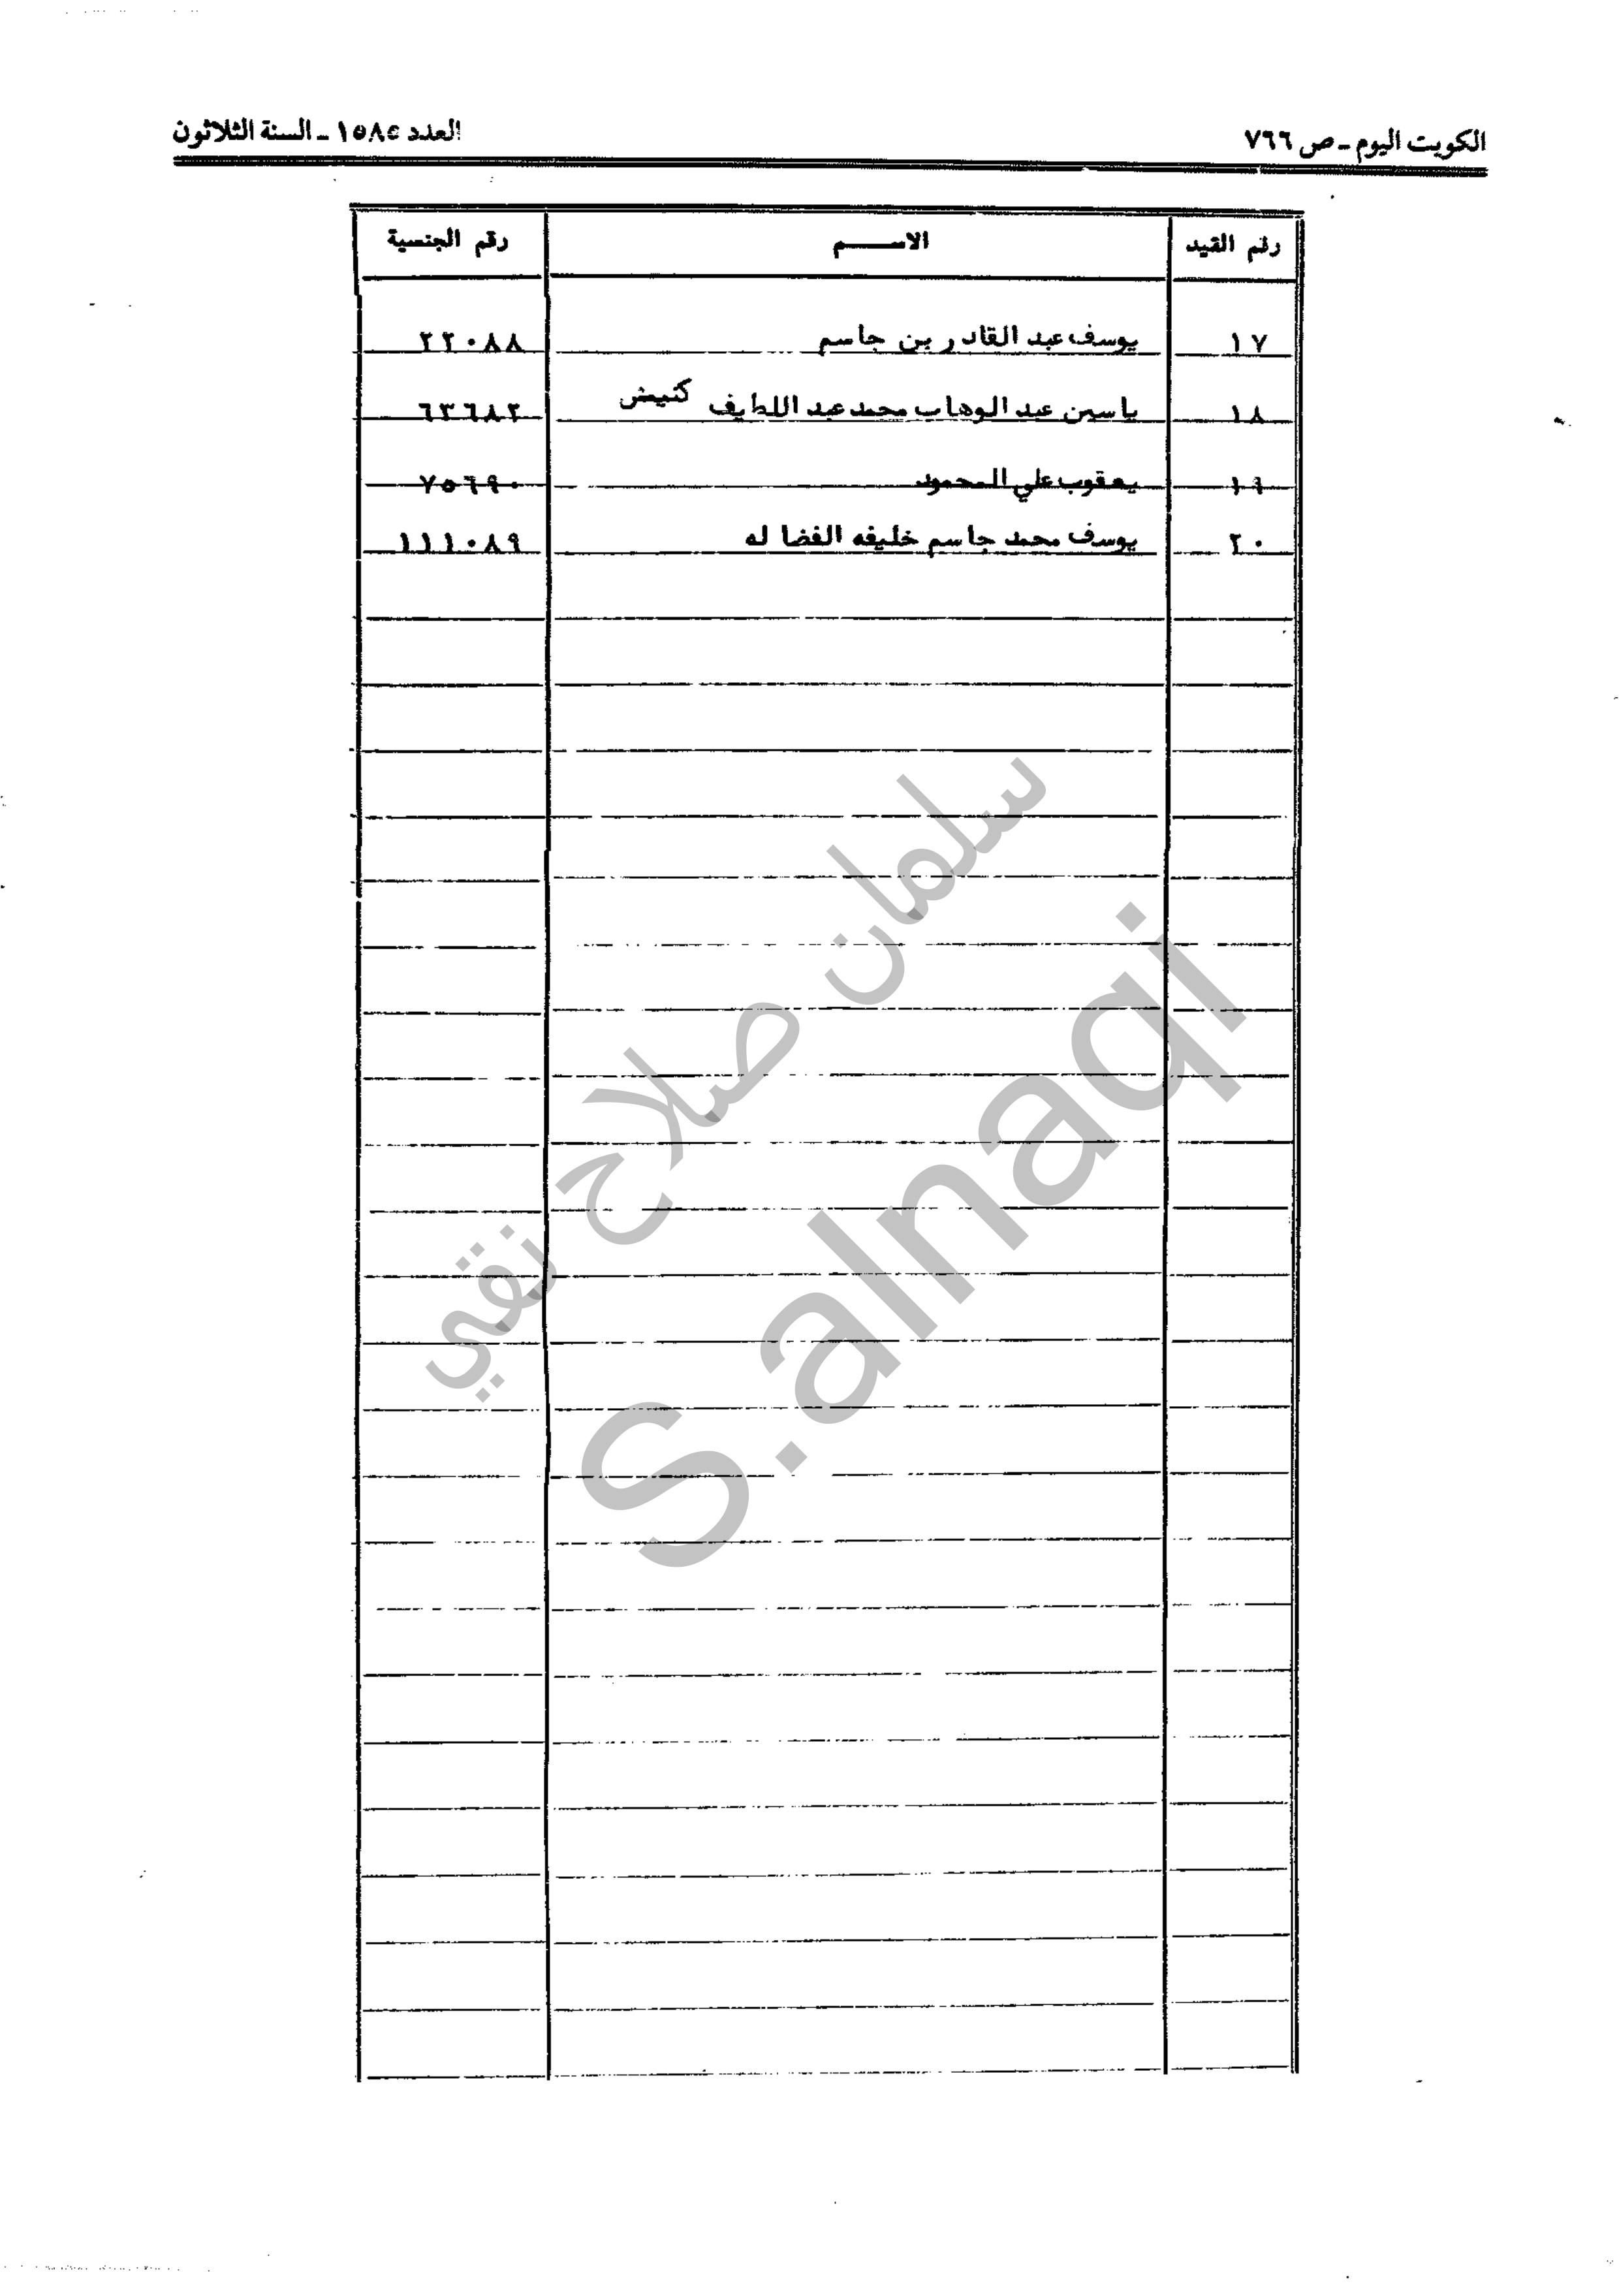 الكويت اليوم ـ ص ٧٦٦
العدد ١٥٨٤ ـ السنة الثلاثون
رقم القيد الاســـم رقم الجنسية
١٧ يوسف عبد القادر بن جاسم ٢٢٠٨٨
١٨ ياسين عبد الوهاب محمد عبد اللطيف كنيش ٦٣٦٨٢
١٩ يعقوب علي المحمود ٧٥٦٩٠
٢٠ يوسف محمد جاسم خليفه الفضا له ١١١٠٨٩
سلمان صلاح نقي
S.alnaqi